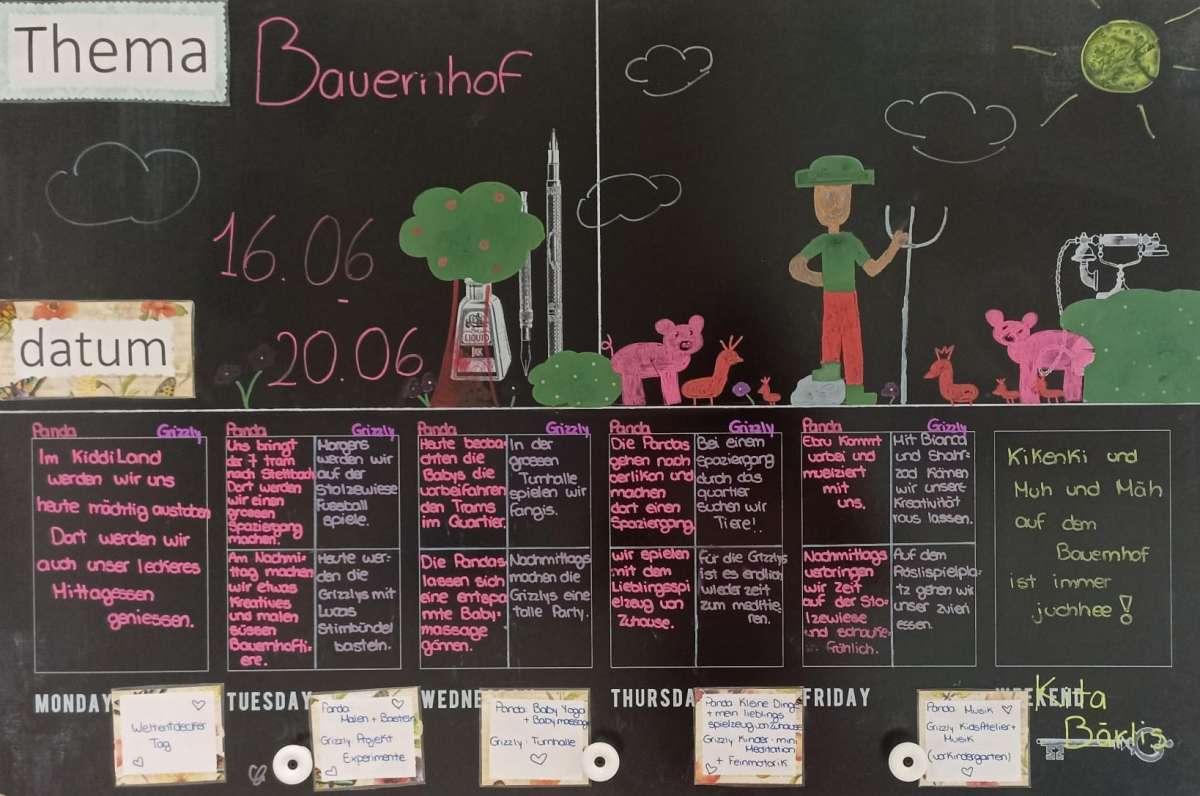 Thema
Bauernhof
16.06
-
20.06
datum
LIQUID
INK
Panda
Grizzly
Im KiddiLand
werden wir uns
heute mächtig austoben
Dort werden wir
auch unser leckeres
Mittagessen
geniessen.
MONDAY
Panda
Grizzly
Uns bringt
der 7 tram
nach Stettbach
Dort werden
wir einen
grossen
Spaziergang
machen!
Morgens
werden wir
auf der
Stolzewiese
Fussball
spiele.
Am Nachmi-
ttag machen
wir etwas
Kreatives
und malen
süssen
Bauernhofti-
ere.
Heute wer-
den die
Grizzlys mit
Lucas
Stirnbündel
basteln.
TUESDAY
Panda
Grizzly
Heute beoba-
chten die
Babys die
vorbeifahren
den Trams
im Quartier.
In der
grossen
Turnhalle
spielen wir
fangis.
Die Pandas
lassen sich
eine entspa
nnte Baby-
massage
gönnen.
Nachmittags
machen die
Grizzlys eine
tolle Party.
WEDNE
Panda
Grizzly
Die Pandas
gehen nach
oerlikon und
machen
dort einen
Spaziergang
Bei einem
Spaziergang
durch das
quartier
suchen wir
Tiere!
wir spielen
mit dem
Lieblingsspi
elzeug von
Zuhause.
Für die Grizzlys
ist es endlich
wieder zeit
zum meditie
ren.
THURSDA
Panda
Grizzly
Ebru kommt
vorbei und
musiziert
mit
uns.
Mit Bianca
und Shahr-
zad können
wir unsere
Kreativität
raus lassen.
Nachmittags
verbringen
wir Zeit
auf der Sto-
lzewiese
und schauke
fröhlich.
Auf dem
Röslispielpla-
tz gehen wir
unser zvieri
essen.
FRIDAY
Kikeriki und
Muh und Mäh
auf dem
Bauernhof
ist immer
juchhee!
WEEKEND
Kita
Bärlis
Weltentdecker
Tag
Panda:
Malen + Basteln
Grizzly Projekt
Experimente
Panda: Baby Yoga
+ Babymassage
Grizzly: Turnhalle
Panda Kleine Dinge
+ mein lieblings
spielzeug von Zuhause
Grizzly Kinder-mini
Meditation
+ Feinmotorik
Panda: Musik
Grizzly KidsAtelier+
Musik
(vorkindergarten)